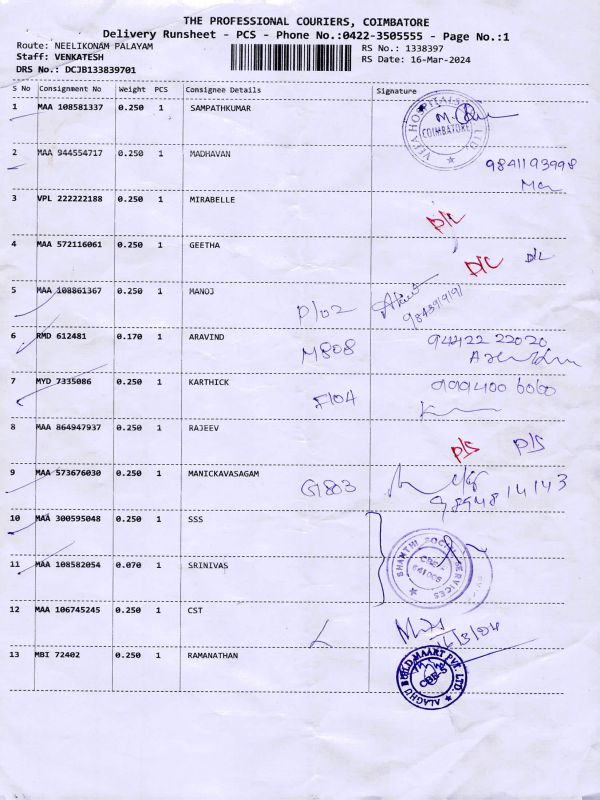 THE PROFESSIONAL COURIERS, COIMBATORE
Delivery Runsheet - PCS - Phone No.:0422-3505555 - Page No.:1
Route: NEELIKONAM PALAYAM
RS No.: 1338397
Staff: VENKATESH
RS Date: 16-Mar-2024
DRS No.: DCJB133839701
S No Consignment No Weight PCS Consignee Details Signature
1 MAA 108581337 0.250 1 SAMPATHKUMAR
COIMBATORE
2 MAA 944554717 0.250 1 MADHAVAN
9841193998
3 VPL 222222188 0.250 1 MIRABELLE
D/L
4 MAA 572116061 0.250 1 GEETHA
D/C D/L
5 MAA 108861367 0.250 1 MANOJ
P/02
6 RMD 612481 0.170 1 ARAVIND
M808 94422 22020
7 MYD 7335086 0.250 1 KARTHICK
F104 999400 6060
8 MAA 864947937 0.250 1 RAJEEV
P/S P/S
9 MAA 573676030 0.250 1 MANICKAVASAGAM
G1803 9894814143
10 MAA 300595048 0.250 1 SSS
SHANTHI SOCIAL SERVICES
11 MAA 108582054 0.070 1 SRINIVAS
12 MAA 106745245 0.250 1 CST
13 MBI 72402 0.250 1 RAMANATHAN
ALAGHU BUILD MAART PVT. LTD.